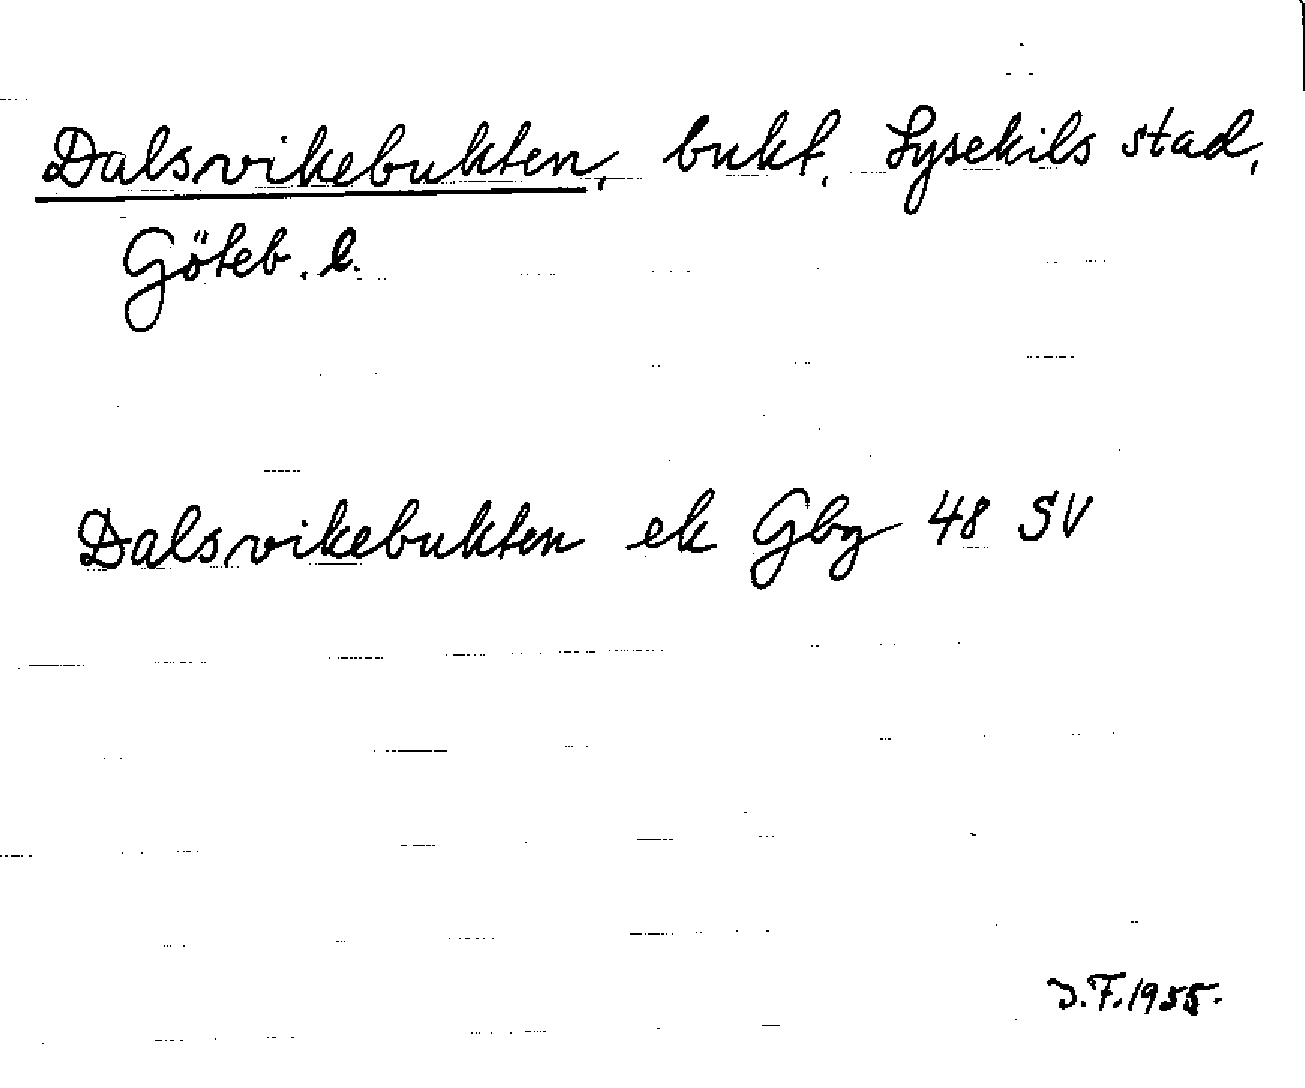 Dalsvikebukten, bukt, Lysekils stad,
Göteb. l.
Dalsvikebukten ek Gbg 48 SV
D.F.1955.